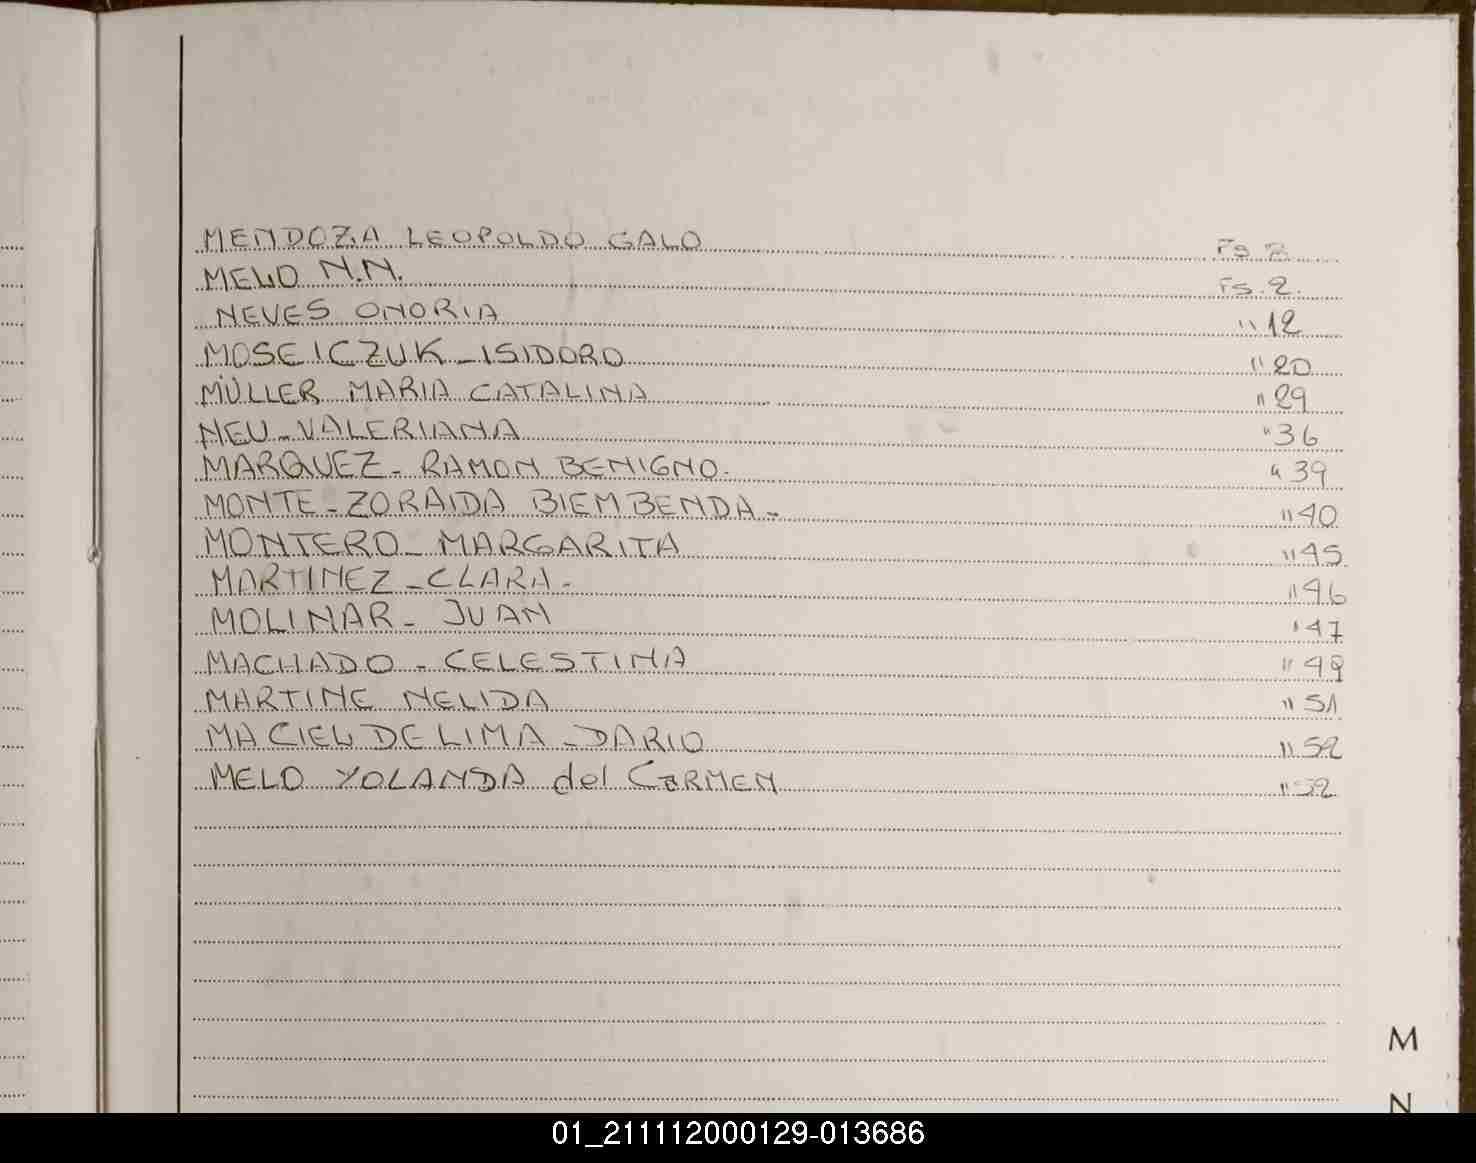 MENDOZA LEOPOLDO GALO Fs 2
MELO N.N. Fs. 2.
NEVES ONORIA " 12
MOSEICZUK - ISIDORO " 20
MÜLLER MARIA CATALINA " 29
NEU - VALERIANA " 36
MARQUEZ - RAMON BENIGNO. " 39
MONTE - ZORAIDA BIEMBENDA - " 40
MONTERO - MARGARITA " 45
MARTINEZ - CLARA - " 46
MOLINAR - JUAN " 47
MACHADO - CELESTINA " 49
MARTINE NELIDA " 51
MACIEL DE LIMA - DARIO " 52
MELO YOLANDA del CARMEN " 52
M
N
01_211112000129-013686